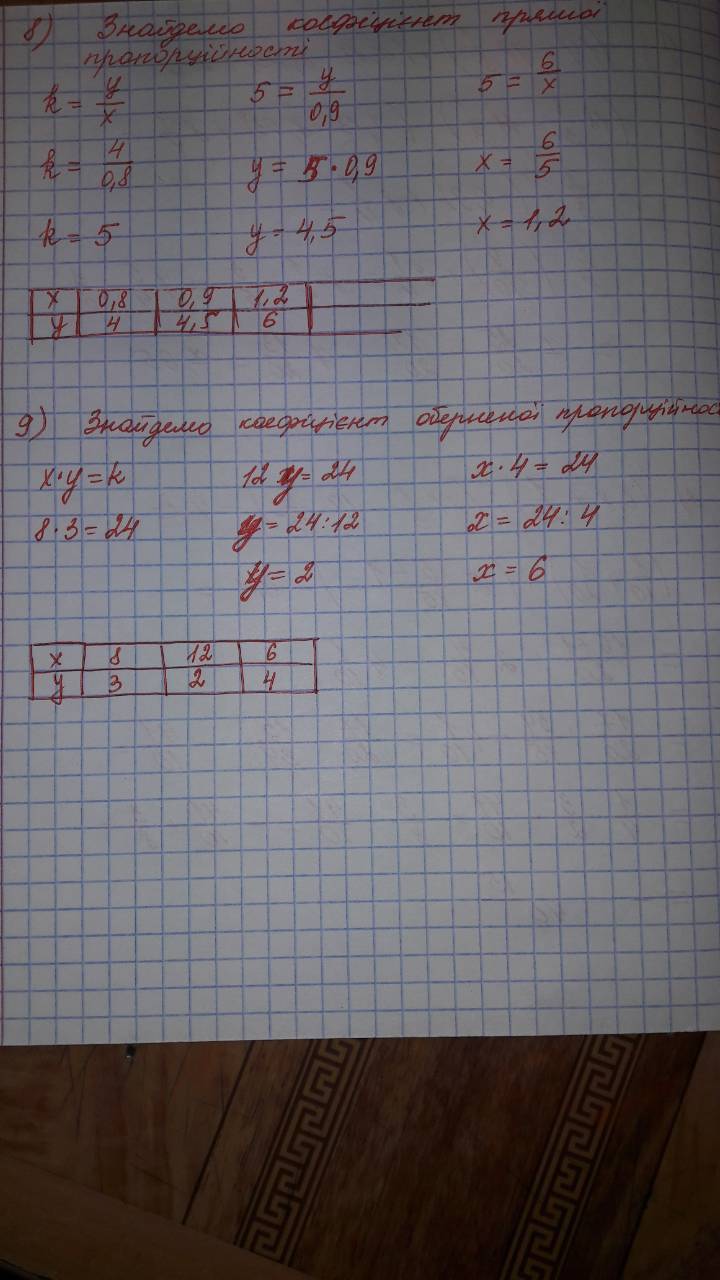 8) Знайдемо коефіцієнт прямої
пропорційності
k = y/x   5 = y/0,9   5 = 6/x
k = 4/0,8   y = 5 · 0,9   x = 6/5
k = 5   y = 4,5   x = 1,2
x 0,8 0,9 1,2
y 4 4,5 6
9) Знайдемо коефіцієнт оберненої пропорційнос
x·y = k   12 y = 24   x · 4 = 24
8·3 = 24   y = 24:12   x = 24:4
y = 2   x = 6
x 8 12 6
y 3 2 4